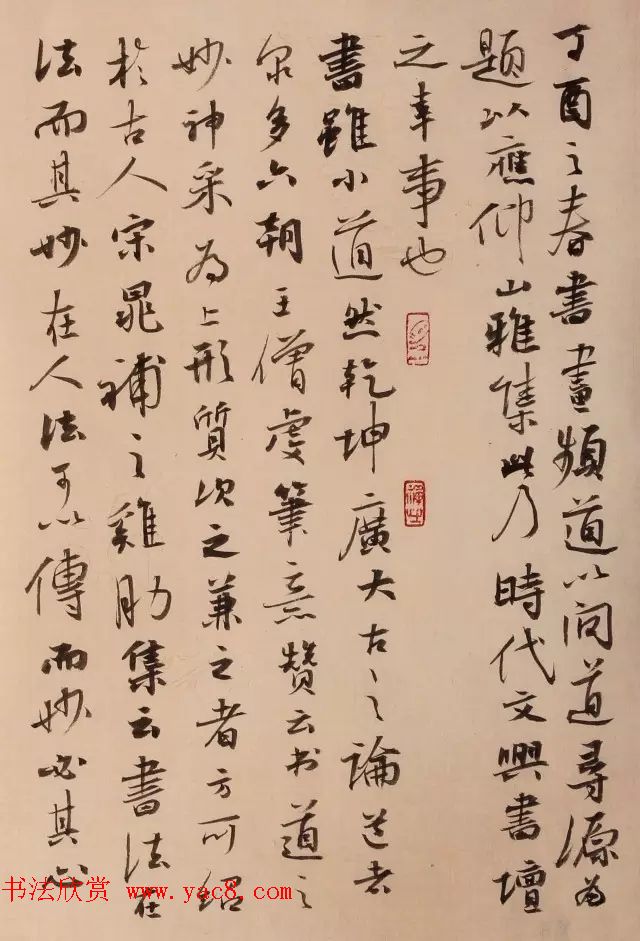 丁酉之春書畫頻道以问道尋源為
题以應仰山雅集此乃時代文興書壇
之幸事也
書雖小道然乾坤廣大古之論道者
衆多六朝王僧虔筆意赞云书道之
妙神采為上形質次之兼之者方可绍
於古人宋晁補之雞肋集云書法在
法而其妙在人法可以傳而妙必其心
书法欣赏 www.yac8.com